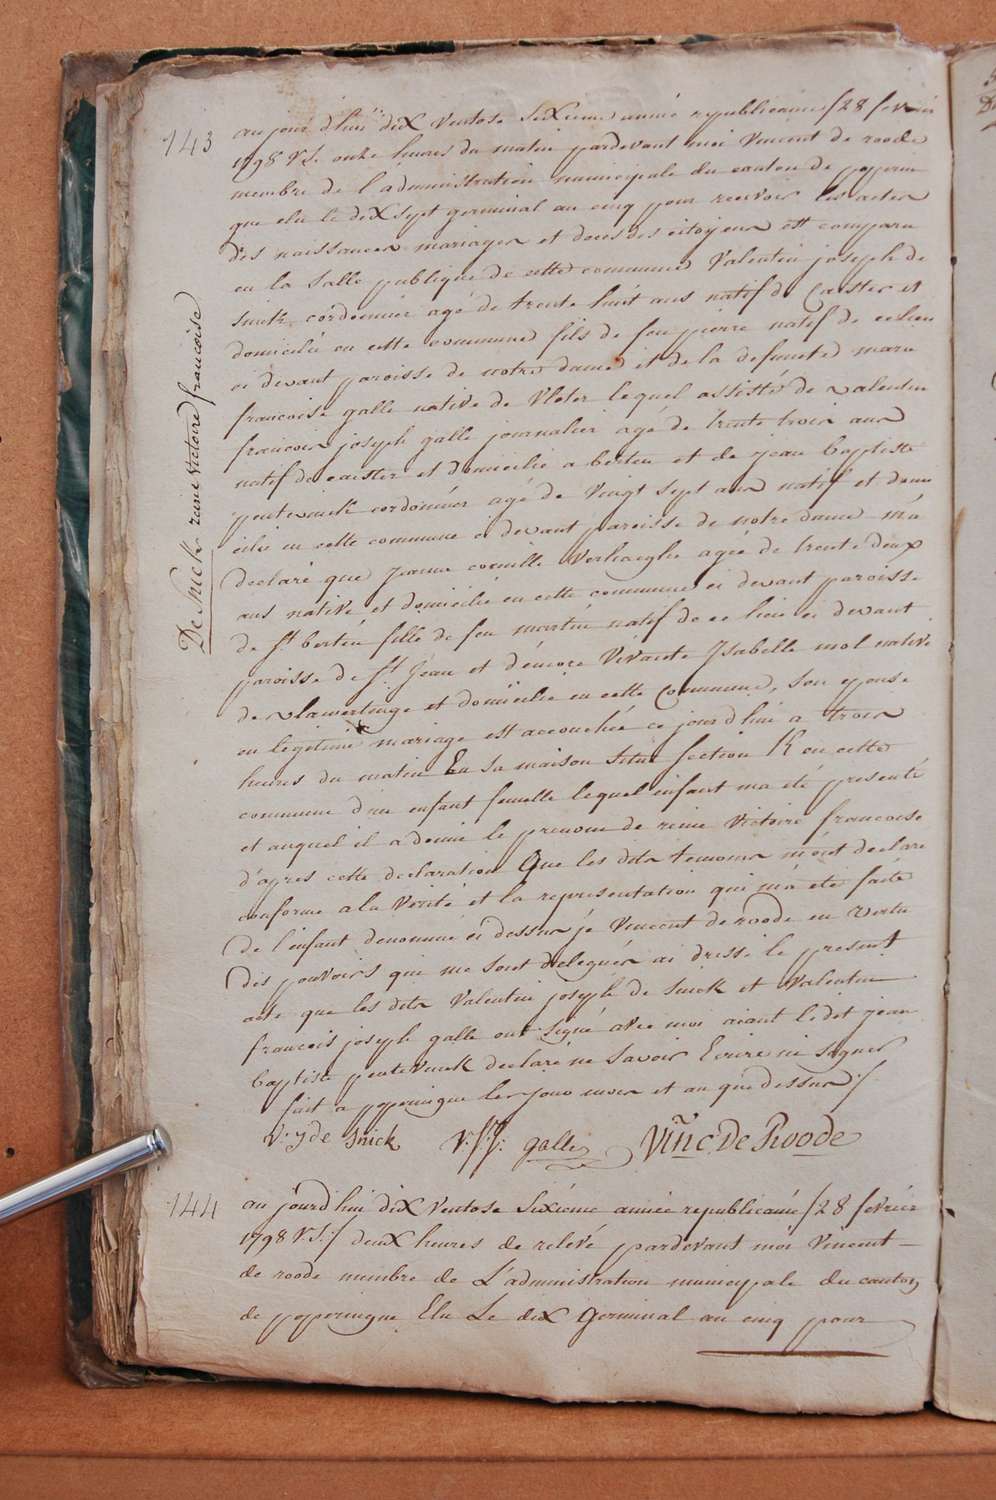 143
au jour d'hui dix Ventose Sixieme année republicaine /28 fevrier
1798 V.S. onze heures du matin pardevant moi Vincent de roode
membre de l'administration municipale du canton de poperin
que elu le dix sept germinal an cinq pour recevoir les actes
des naissances mariages et deces des citoyens est comparu
en la Salle publique de cette commune Valentin joseph de
Snick cordonnier agé de trente huit ans natif de Caester et
domicilié en cette commune fils de feu pierre natif de ce lieu
ci devant paroisse de notre dame et de la defuncte marie
francoise galle native de Vleter lequel assisté de valentin
francois joseph galle journalier agé de trente trois ans
natif de caester et domicilié a berten et de jean baptiste
peuterinck cordonnier agé de Vingt Sept ans natif et domi
cilié en cette commune ci devant paroisse de notre dame m'a
declaré que jeanne cornille Verhaeghe agée de trente deux
ans native et domicilié en cette commune ci devant paroisse
de St bertin fille de feu martin natif de ce lieu ci devant
paroisse de St Jean et d'encore Vivante Isabelle mol native
de vlamertinge et domicilié en cette Commune, Son epouse
en legitime mariage est accouchée ce jourd'hui a trois
heures du matin En sa maison Situé Section K en cette
commune d'un enfant femelle lequel enfant m'a été presenté
et auquel il a donné le prenom de reine Victoire francoise
d'apres cette declaration Que les dits temoins m'ont declaré
conforme a la Verité et la representation qui m'a été faite
De l'enfant denommé ci dessus je Vincent de roode en vertu
Des pouvoirs qui me sont delegués ai dressé le present
acte que les dits Valentin joseph de Snick et Valentin
francois joseph galle ont Signé avec moi aiant le dit jean
baptiste peuterinck declaré ne Savoir Ecrire ni Signer
fait a poperingue les jour mois et an que dessus /.
V. j de Snick V: f: j: galle Vinc. De Roode
De Snick reine victoire francoise
144
au jourd'hui dix Ventose Sixiéme année republicaine /28 fevrier
1798 V.S:/ deux heures de relévé pardevant moi Vincent
de roode membre de L'administration municipale du canton
de poperingue Elu Le dix Germinal an cinq pour